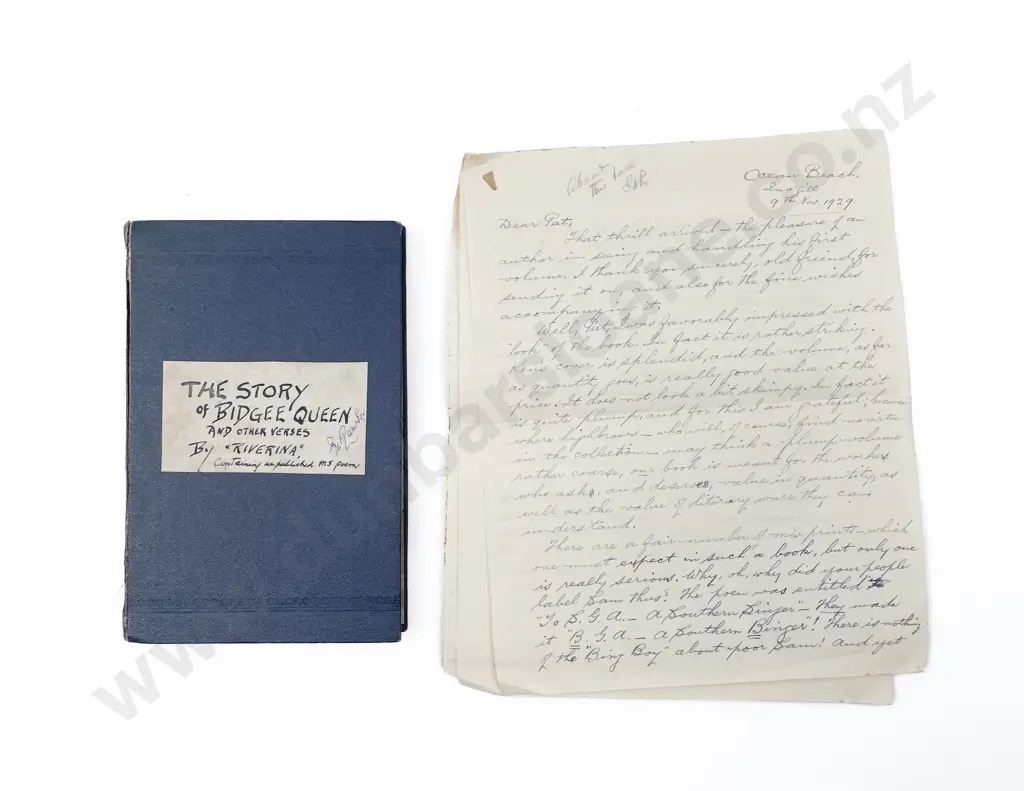 THE STORY
of BIDGEE QUEEN
AND OTHER VERSES
By "RIVERINA"
Containing unpublished MS poem
About
This
Ocean Beach,
9th Nov. 1929
Dear Pat,
That thrill arrived — the pleasure of an
author in seeing and handling his first
volume. I thank you sincerely, old friend, for
sending it on, and also for the fine wishes
accompanying it.
Well, Pat, I was favorably impressed with the
"look" of the book. In fact it is rather striking.
cover is splendid, and the volume, as far
as quantity goes, is really good value at the
price. It does not look a bit skimpy. In fact it
is quite plump, and for this I am grateful; because
where highbrows — who will, of course, find no virtue
in the collection — may think a plump volume
rather coarse, our book is meant for the workers
who ask, and deserve, value in quantity, as
well as the value of literary ware they can
understand.
There are a fair number of misprints — which
one must expect in such a book, but only one
is really serious. Why, oh, why did your people
label Sam thus? The poem was entitled
"To S. G. A. — A Southern Singer" — They made
it "B. G. A. — A Southern Binger"! There is nothing
of the "Bing Boy" about poor Sam! And yet
www.dunbarsloane.co.nz